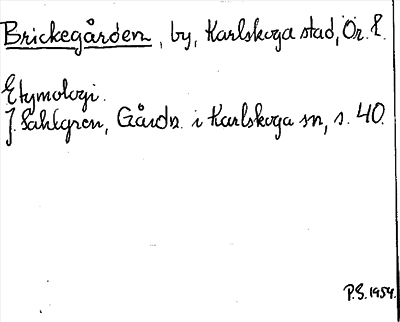 Brickegården, by, Karlskoga stad, Ör. l.
Etymologi.
J. Sahlgren, Gårdn. i Karlskoga sn, s. 40.
P.S. 1954.